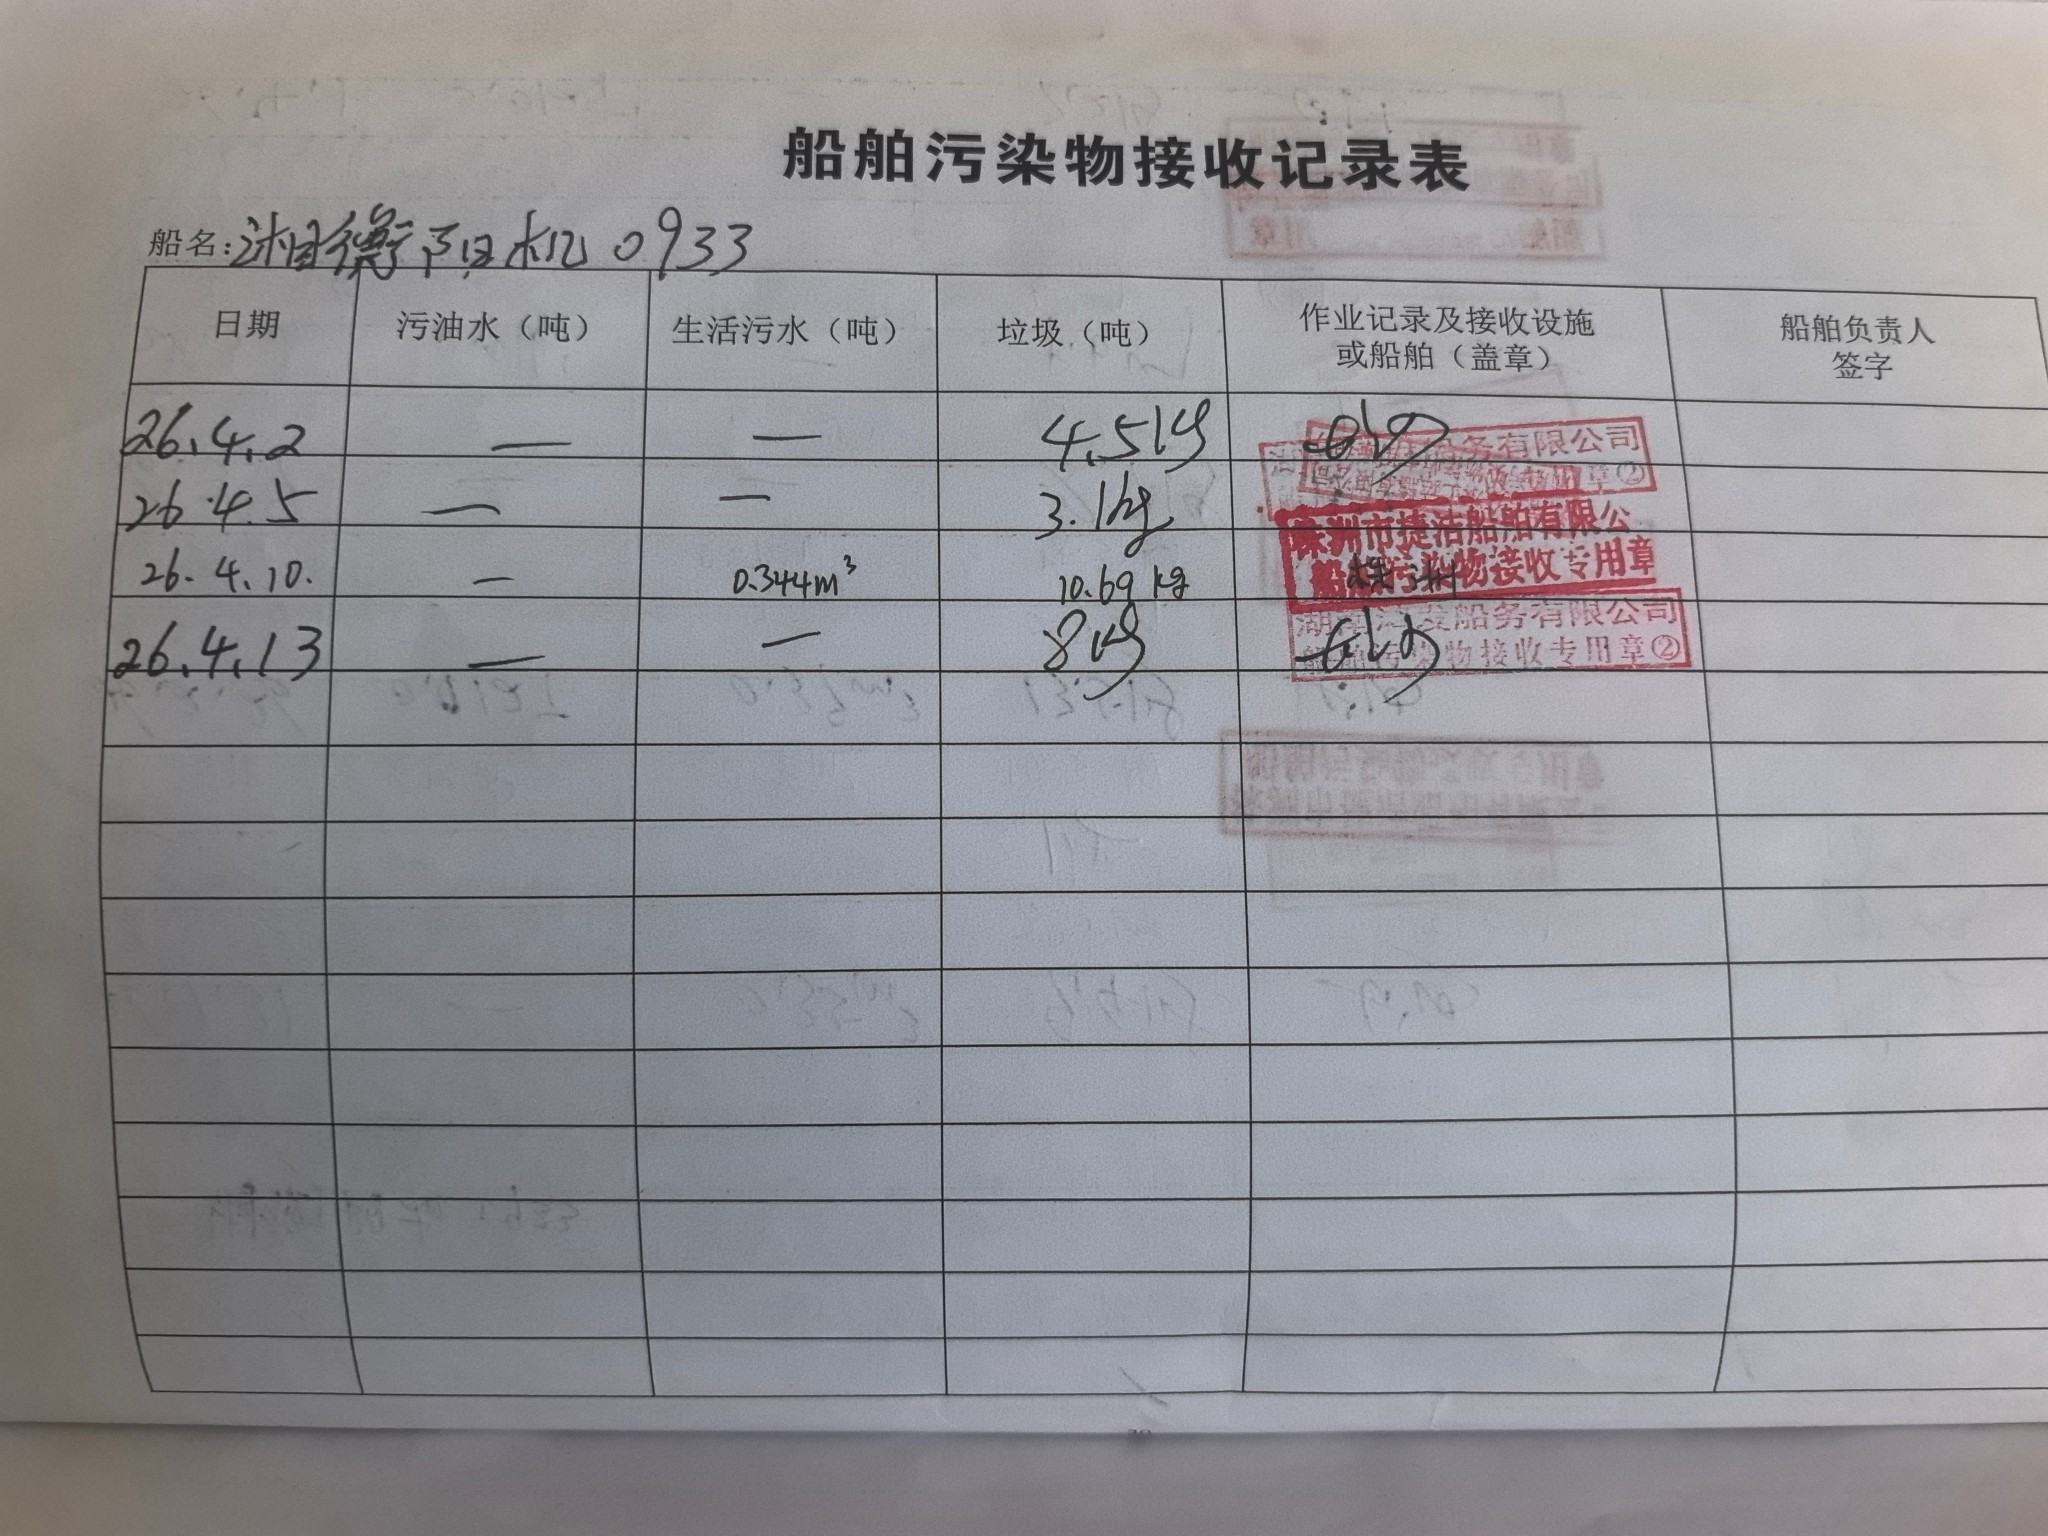 船舶污染物接收记录表
船名：湘衡阳机0933
日期 污油水（吨） 生活污水（吨） 垃圾（吨） 作业记录及接收设施或船舶（盖章） 船舶负责人签字
26.4.2 — — 4.5kg 船务有限公司 章②
26.4.5 — — 3.1kg
26.4.10. — 0.344m³ 10.69kg 株洲 株洲市捷洁船舶有限公 船舶污染物接收专用章
26.4.13 — — 8kg 船务有限公司 船舶污染物接收专用章②